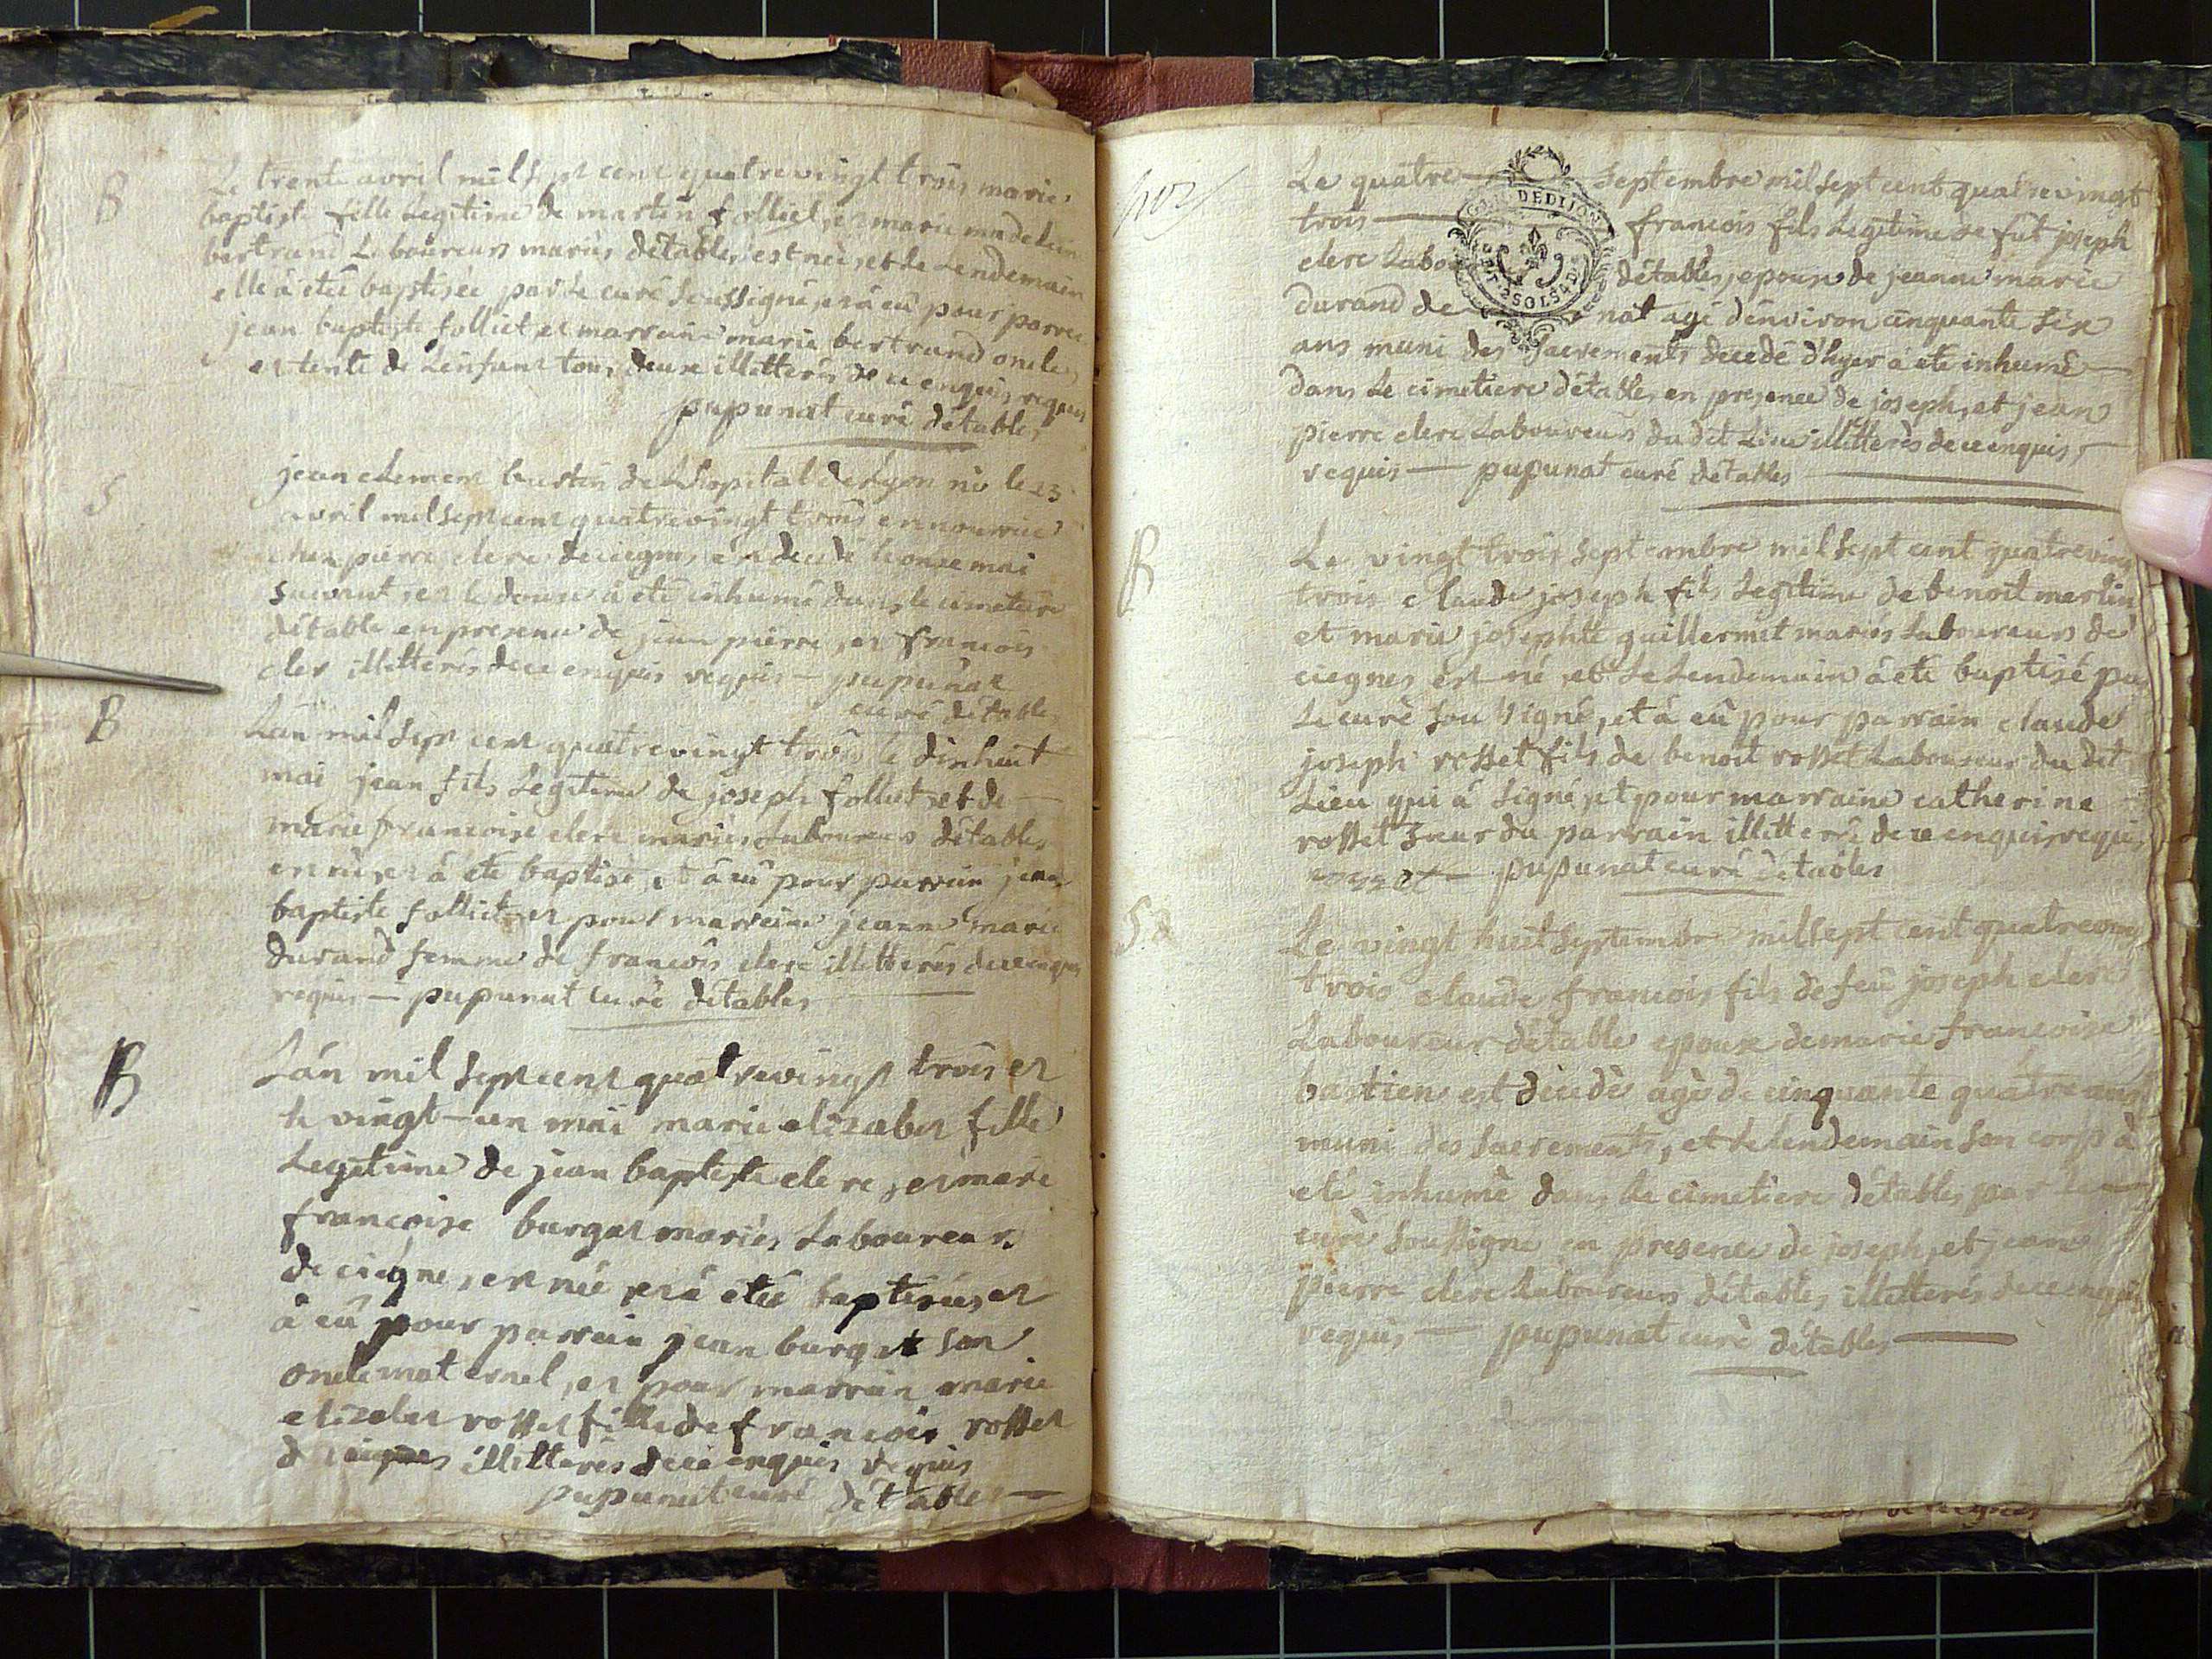 B
Le trente avril mil sept cent quatrevingt trois marie
baptiste fille Legitime de martin folliet, et marie madelain
bertrand Laboureurs mariés détables, est née, et Le Lendemain
elle à étée baptisée par Le curé soussigné, et à eû pour parrei
jean baptiste folliet et marraine marie bertrand oncle,
et tente de Lenfant tous deux illitterés de ce enquis, requis
pupunat curé détables
S
jean clement bustin de Lhopital de Lyon né le 23
avril mil sept cent quatrevingt trois en nourrice
chez pierre clerc de ciegnes, est decedé le onze mai
suivant, et le douze à été inhumé dans le cimetiere
détable en presence de jean pierre, et francois
cler illitterés de ce enquis requis — pupunat
curé détables
B
Lân mil sept cent quatrevingt trois le dixhuit
mai jean fils Legitime de joseph folliet, et de
marie francoise clerc mariés Laboureurs détables
est né, et à eté baptisé, et à eû pour parrain jean
baptiste folliet, et pour marreine jeanne marie
durand femme de francois clerc illitterés de ce enquis
requis — pupunat curé détables
B
Lán mil sept cent quatrevingt trois et
le vingt-un mai marie elizabet fille
Legitime de jean baptiste clerc, et marie
francoise burgat mariés Laboureurs
de ciegne, est née, et à étée baptisée, et
à eû pour parrain jean burgat son
oncle maternel, et pour marrain marie
elizabet rosset fille de francois rosset
de ciegnes illitterés de ce enquis requis
pupunat curé détables —
Le quatre — septembre mil sept cent quatrevingt
trois — francois fils Legitime de fut joseph
clerc Labou détables, epoux de jeanne marie
DE DIJON
2 SOLS 4 D
durand de nat agé d'environ cinquante six
ans muni des sacrements decedé d'hyer à eté inhumé —
dans Le cimetiere détables en presence de joseph, et jean
pierre clerc Laboureurs du dit Lieu illitterés de ce enquis
requis — pupunat curé détables —
B
Le vingt trois septembre mil sept cent quatrevingt
trois claude joseph fils Legitime de benoit merlin
et marie josephte guillermet mariés Laboureurs de
ciegnes est né, et Le Lendemain à eté baptisé par
Le curé soussigné, et à eû pour parrain claude
joseph rosset fils de benoit rosset Laboureur du dit
Lieu qui à signé, et pour marraine catherine
rosset soeur du parrain illitterée de ce enquis requis
rosset — pupunat curé détables
Le vingt huit septembre mil sept cent quatrevingt
trois claude francois fils de feû joseph clerc
Laboureur détable epoux de marie francoise
bastien est décedé agé de cinquante quatre ans
muni des sacrements, et Le Lendemain son corps à
eté inhumé dans Le cimetiere détables par Le
curé soussigné en presence de joseph, et jean
pierre clerc Laboureurs détables illitterés de ce enquis
requis — pupunat curé détables —